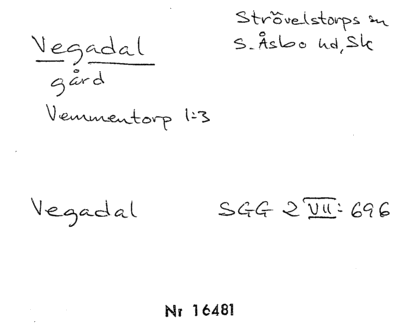 Vegadal
gård
Vemmentorp 1:3
Strövelstorps sn
S. Åsbo hd, Sk
Vegadal SGG 2 VII: 696
Nr 16481